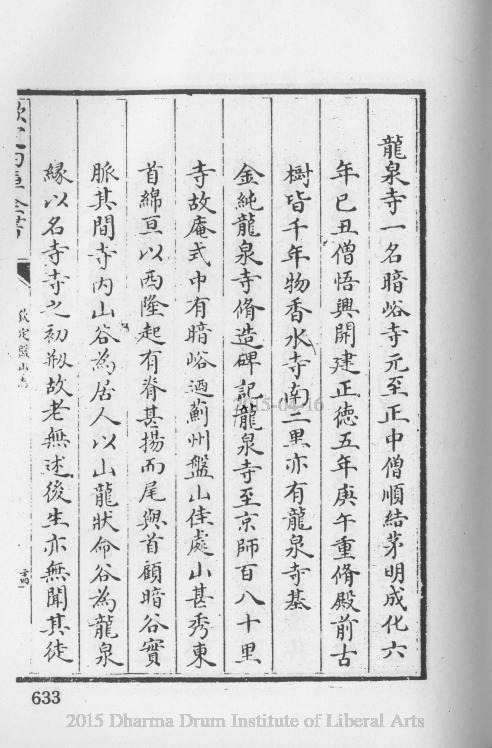 龍泉寺一名暗峪寺元至正中僧順結茅明成化六
年己丑僧悟興開建正徳五年庚午重脩殿前古
樹皆千年物香水寺南二里亦有龍泉寺基
金純龍泉寺脩造碑記龍泉寺至京師百八十里
寺故庵式中有暗峪迺薊州盤山佳處山甚秀東
首綿亘以西隆起有脊甚揚而尾與首顧暗谷實
脈其間寺内山谷為居人以山龍狀命谷為龍泉
緣以名寺寺之初剏故老無述後生亦無聞其徒
欽定四庫全書
欽定盤山志
2015-04-16
633
2015 Dharma Drum Institute of Liberal Arts